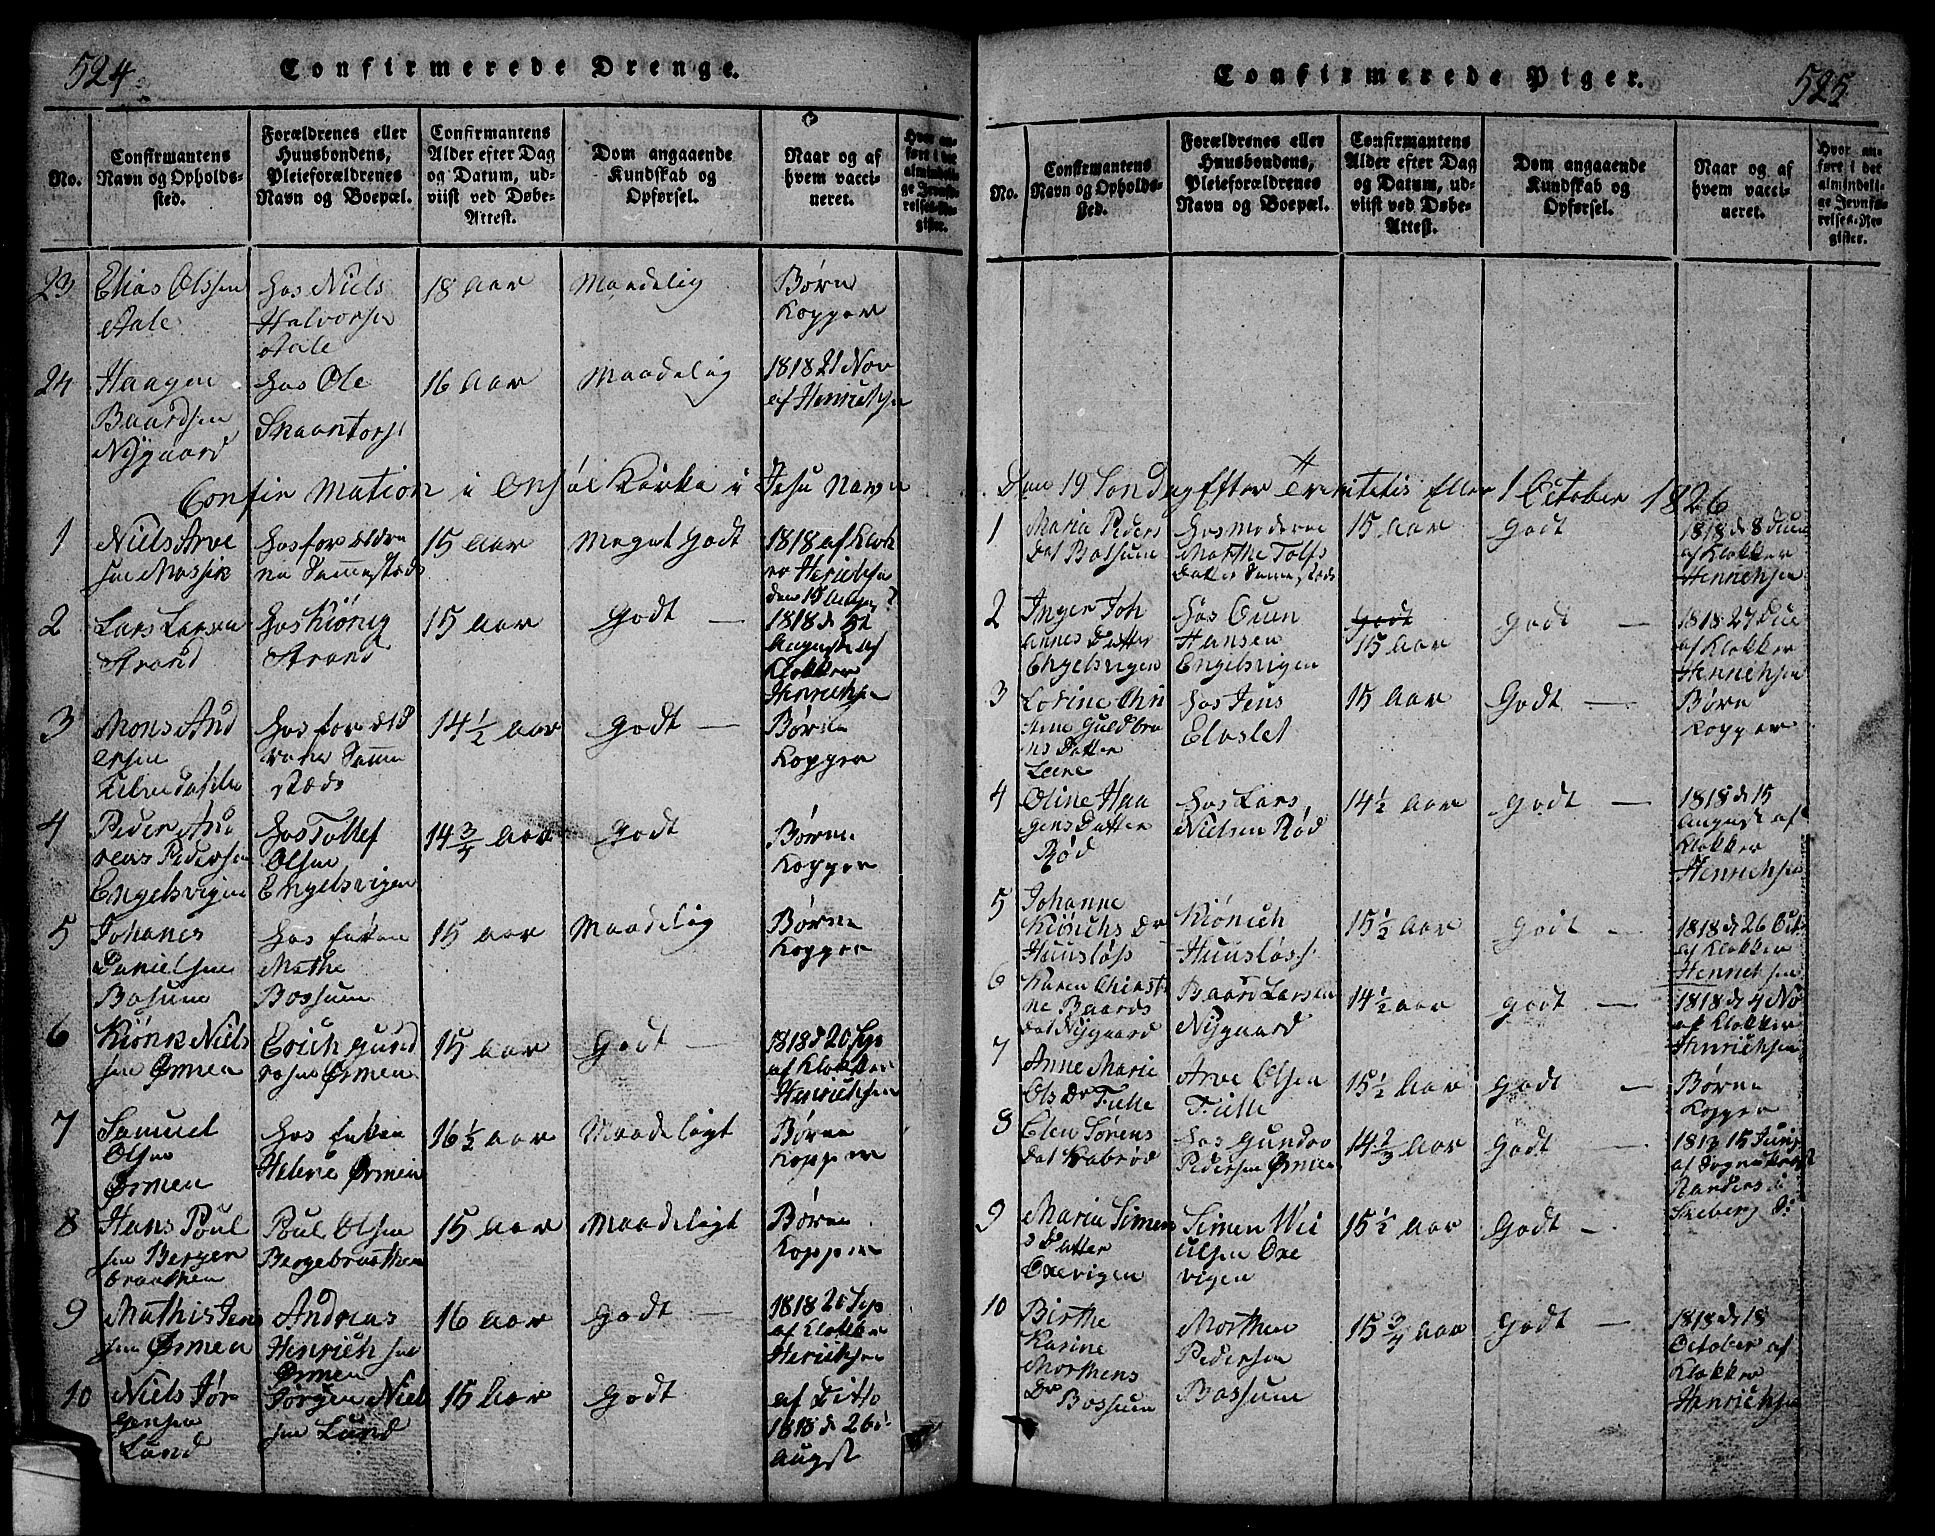 524
Confirmerede Drenge.
No.
Confirmantens
Navn og Opholds-
sted.
Forældrenes eller
Huusbondens,
Pleieforældrenes
Navn og Boepæl.
Confirmantens
Alder efter Dag
og Datum, ud-
viist ved Døbe-
Attest.
Dom angaaende
Kundskab og
Opførsel.
Naar og af
hvem vacci-
neret.
Hvor an-
ført i det
almindeli-
ge Jevnfø-
relses-Re-
gister.
23
Elias Olssen
Aale
hos Niels
Halvorsen
Aale
18 Aar
Maadelig
Børne
Kopper
24
Haagen
Baardsen
Nygaard
hos Ole
16 Aar
Maadelig
1818 21 Nov
af Henrichsen
Confirmation i Onsøe Kirke i Jesu Navn
1
Niels Arve
sen
hos forældre
ne Sammestæds
15 Aar
Meget Godt
1818 af Klok
2
Lars Larsen
Strand
hos Kiöniy
Strand
15 Aar
Godt —
Auguste af
Klokker
Henrichsen
3
Mons And
ersen
hos foræld
rene Samme
stæds
14 1/2 Aar
Godt —
Børne
Kopper
4
Peder And
reas Pedersen
Engelsvigen
hos Tollef
Olsen
Engelsvigen
14 3/4 Aar
Godt
Børne
Kopper
5
Johanes
Danielsen
Bosume
hos Enken
Mathe
Bossum
15 Aar
Maadelig
Børne
Kopper
6
Kiönk Niels
sen Ørmen
Erich Gund
ersen Ørmen
15 Aar
Godt —
1818 d 20 Sep
af Klokker
Henrichsen
7
Samuel
Olsen
Ørmen
hos Enken
Helene Ørmen
16 1/2 Aar
Maadeligt
Børne
Kopper
8
Hans Poul
sen Berger
braathen
Poul Olsen
Bergebraathen
15 Aar
Maadeligt
Børne
Kopper
9
Mathis Jens
sen Ørmen
Andreas
Henrich sen
Ørmen
16 Aar
Godt —
1818 20 Sep
af Klokker
Henrichsen
10
Niels Jør
gensen
Lund
Jørgen Niel
sen Lund
15 Aar
Godt
af Ditto
1818 d 26
Augst
525
Confirmerede Piger.
No.
Confirmantens
Navn og Opholds-
sted.
Forældrenes eller
Huusbondens,
Pleieforældrenes
Navn og Boepæl.
Confirmantens
Alder efter Dag
og Datum, ud-
viist ved Døbe-
Attest.
Dom angaaende
Kundskab og
Opførsel.
Naar og af
hvem vacci-
neret.
Hvor an-
føre i det
almindeli-
ge Jevnfø-
relses-Re-
gister.
Den 19 Søndag Efter Trenitetis Eller 1 October 1826
1
Maria Peders
Dat Bossum
hos moderne
Marthe Tolfs
Datter Sammestæds
15 Aar
Godt
1818 d 8
af Klokker
Henrichsen
2
Inger Joh
annes Datter
Engelsvigen
hos Guun
Hansen
Engelsvigen
Godt
15 Aar
Godt —
af Klokker
Henrichsen
3
Lorine Chri
stine Guldbra
ns Datter
Leene
hos Jens
Eleslet
15 Aar
Godt —
Børne
Kopper
4
Oline Haa
gens Datter
Rød
hos Lars
Nielsen Rød
14 1/2 Aar
Godt —
1818 d 15
August af
Klokker
Henrichsen
5
Johanne
Kiönichs Dr
Huusløss
Kiönich
Huusløss
15 1/2 Aar
Godt —
1818 d 26 Oct
af Klokker
Henrichsen
6
Karen Christi
ne Baards
Dat Nygaard
Baard Larsen
Nygaard
14 1/2 Aar
Godt —
1818 d 4 No
af Klokker
Henrichsen
7
Anne Marie
Ols Dr Tille
Arve Olsen
Tille
15 1/2 Aar
Godt —
Børne
Kopper
8
Elen Sørens
Dat Kabrød
hos Gundor
Pedersen Ørmen
14 2/3 Aar
Godt —
9
Maria Simen
s Datter
Oxevigen
Simen
Oxe
vigen
15 1/2 Aar
Godt —
10
Birthe
Karine
Morthens
Dr Bossum
Morthen
Pedersen
Bossum
15 3/4 Aar
Godt —
1818 d 18
October af
Klokker
Henrichsen